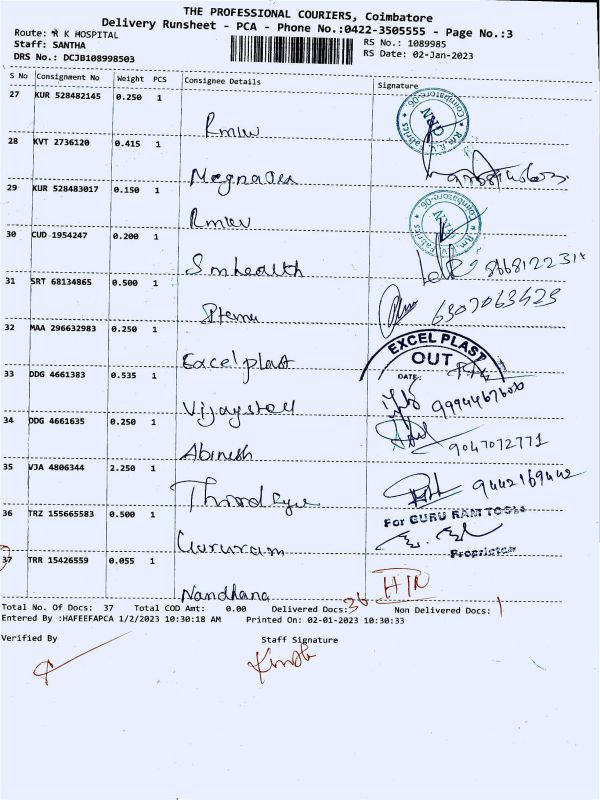 THE PROFESSIONAL COURIERS, Coimbatore
Delivery Runsheet - PCA - Phone No.:0422-3505555 - Page No.:3
Route: ஶ்ரீ K HOSPITAL
Staff: SANTHA
DRS No.: DCJB108998503
RS No.: 1089985
RS Date: 02-Jan-2023
S No Consignment No Weight PCS Consignee Details Signature
27 KUR 528482145 0.250 1
Rmkv
28 KVT 2736120 0.415 1
Magnatex
29 KUR 528483017 0.150 1
Rmkv
30 CUD 1954247 0.200 1
Smhealth 8668122314
31 SRT 68134865 0.500 1
6307063425
32 MAA 296632983 0.250 1
Excelplast
EXCEL PLAST
OUT
DATE:
33 DDG 4661383 0.535 1
Vijaysteel 9994467606
34 DDG 4661635 0.250 1
Abinesh 9047072771
35 VJA 4806344 2.250 1
Third Eye 9442169442
36 TRZ 155665583 0.500 1
For GURU RAM TOOLS
Gururam
Proprietor
37 TRR 15426559 0.055 1
Nandhana
Total No. Of Docs: 37 Total COD Amt: 0.00 Delivered Docs: 36 Non Delivered Docs: 1
Entered By :HAFEEFAPCA 1/2/2023 10:30:18 AM Printed On: 02-01-2023 10:30:33
Verified By Staff Signature